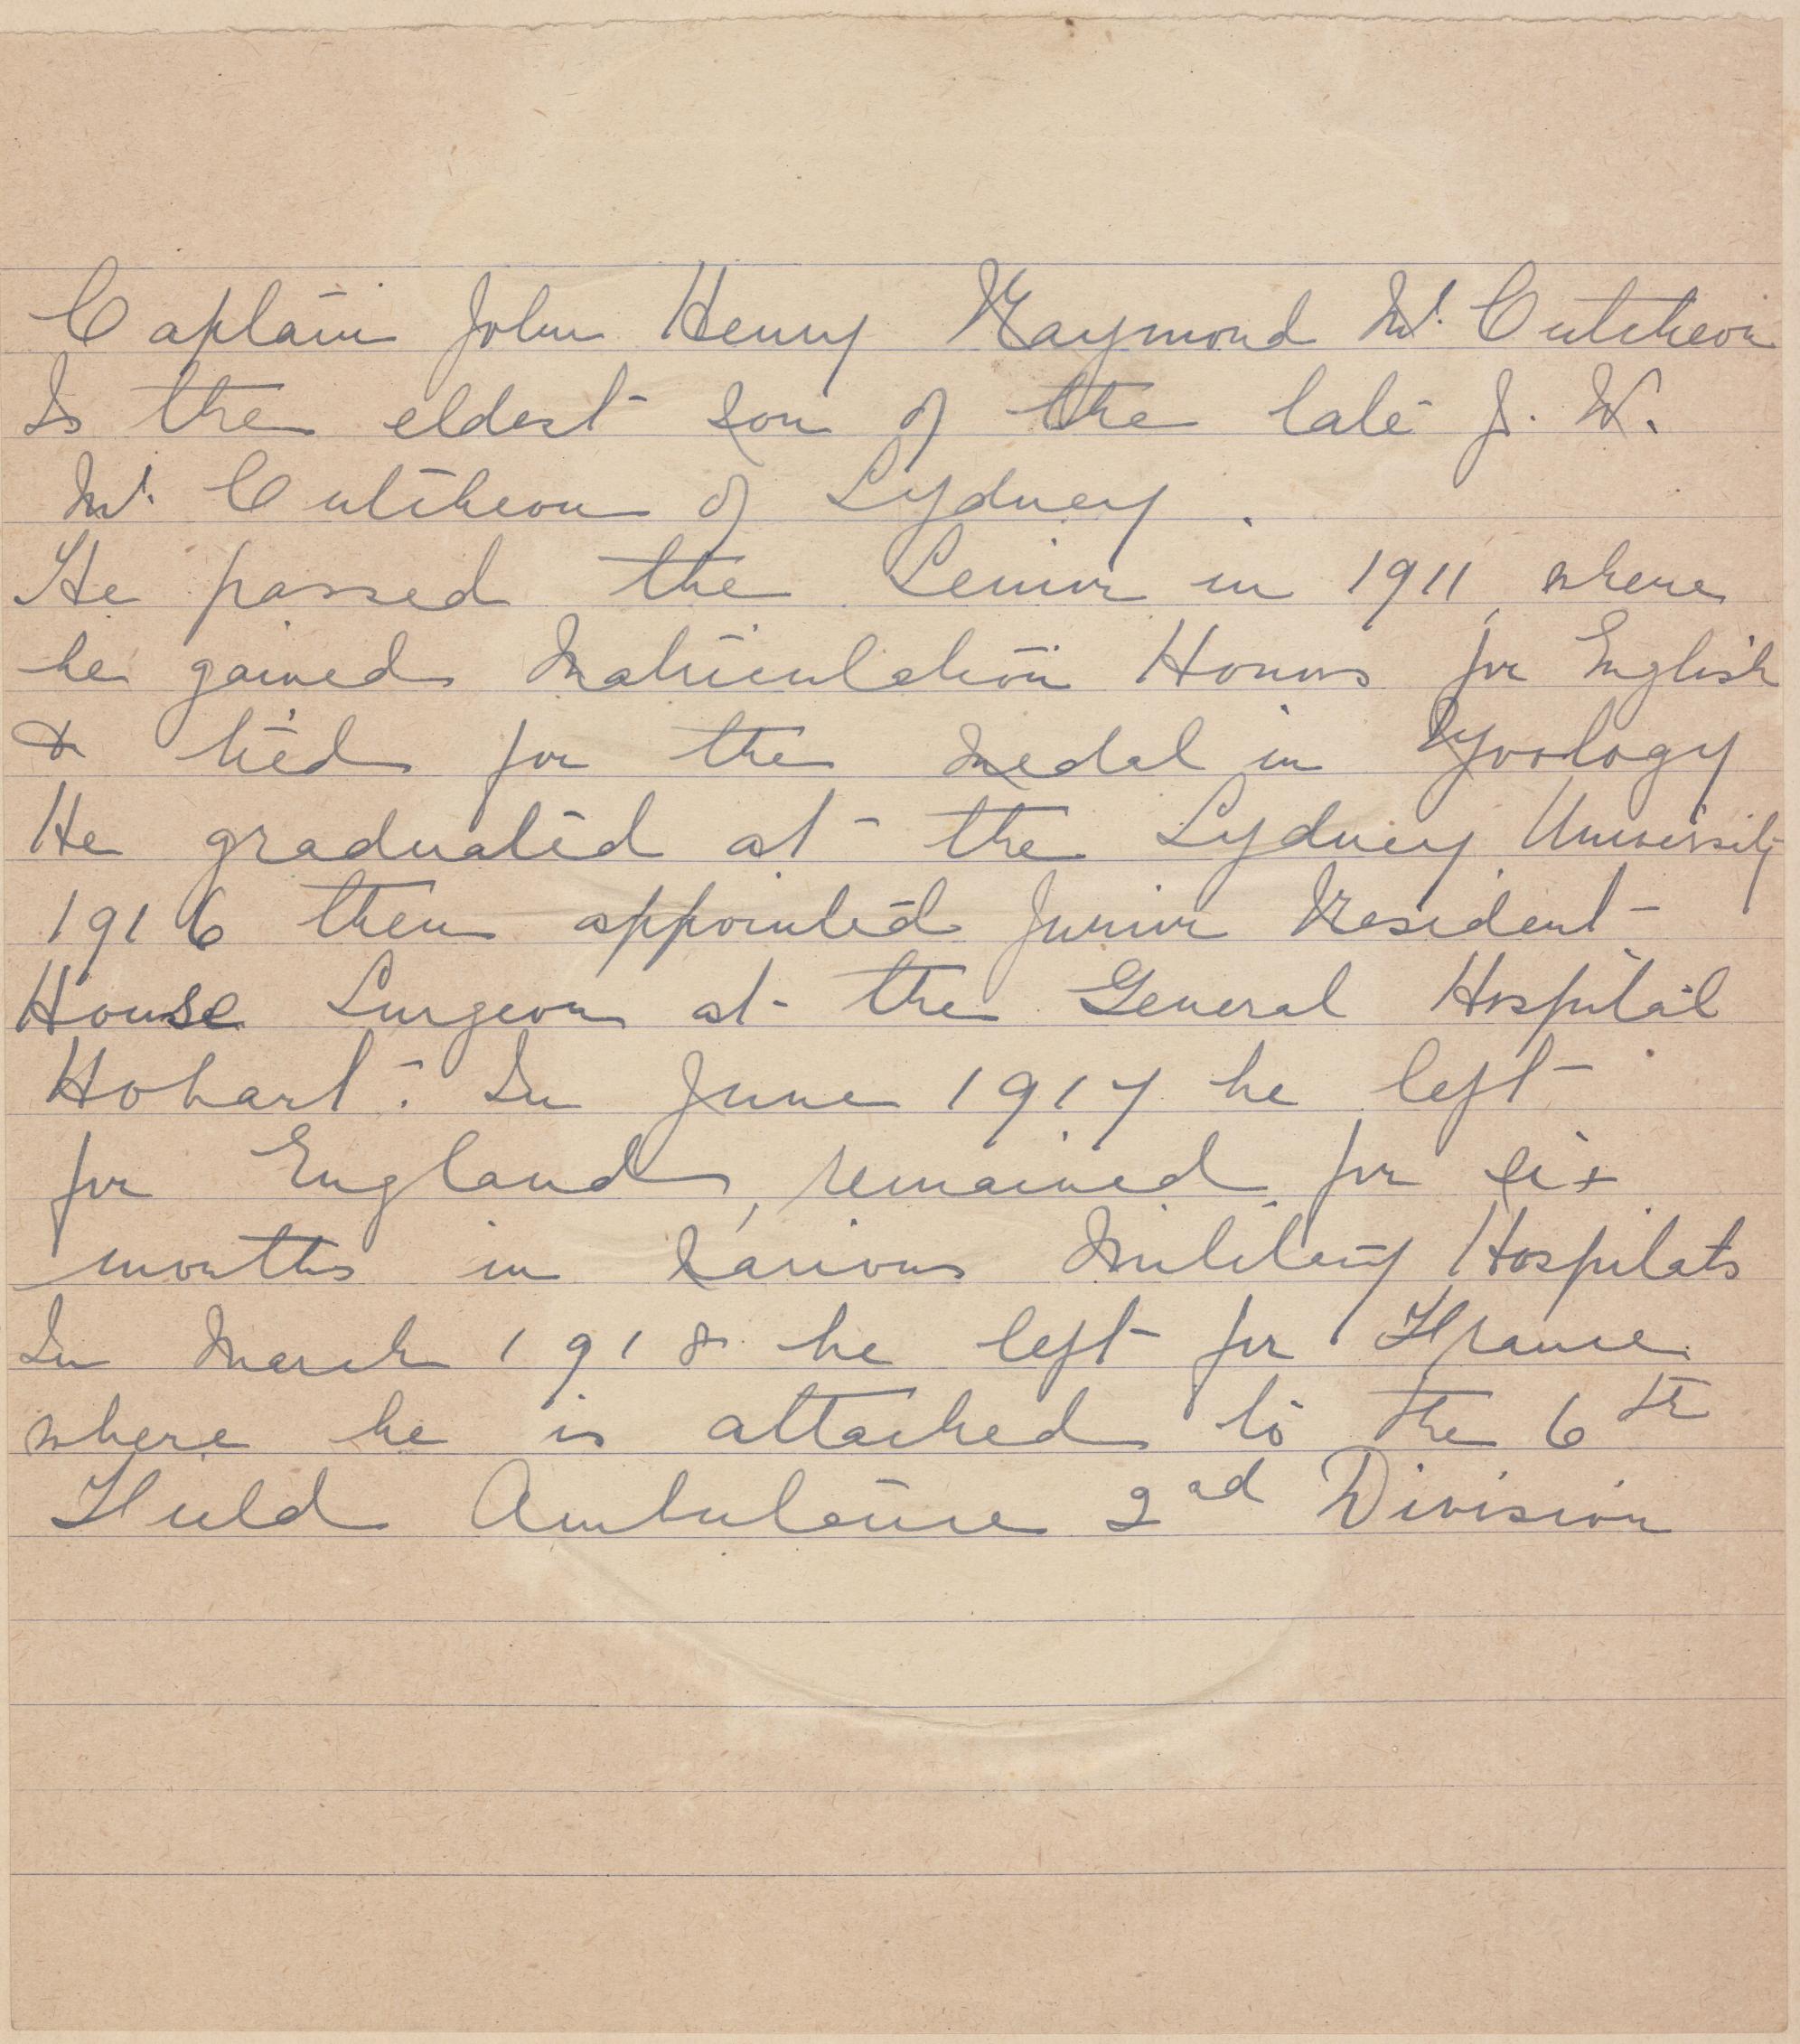 Captain John Henry Raymond Mc. Cutcheon
Is the eldest son of the late J. W.
Mc. Cutcheon of Sydney.
He passed the Senior in 1911, where
he gained Matriculation Honors for English
& tied for the medal in Zoology
He graduated at the Sydney University
1916 then appointed Junior Resident
House Surgeon at the General Hospital
Hobart. In June 1917 he left
for England, remained for six
months in various Military Hospitals
In March 1918 he left for France
where he is attached to the 6th
Field Ambulance 2nd Division